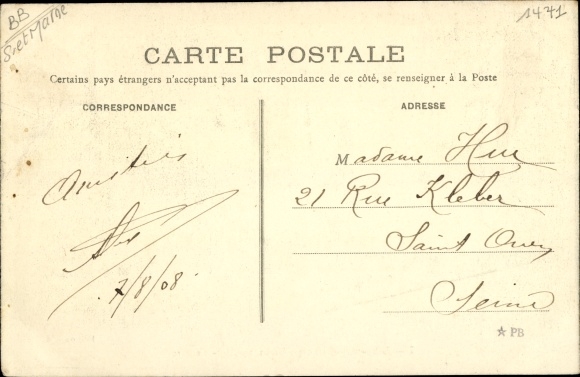 BB
S-et Marne
1471
CARTE POSTALE
Certains pays étrangers n'acceptant pas la correspondance de ce côté, se renseigner à la Poste
CORRESPONDANCE
ADRESSE
Amitiés
7/8/08.
Madame Hue
21 Rue Kleber
Saint Ouen
Seine
☆ PB